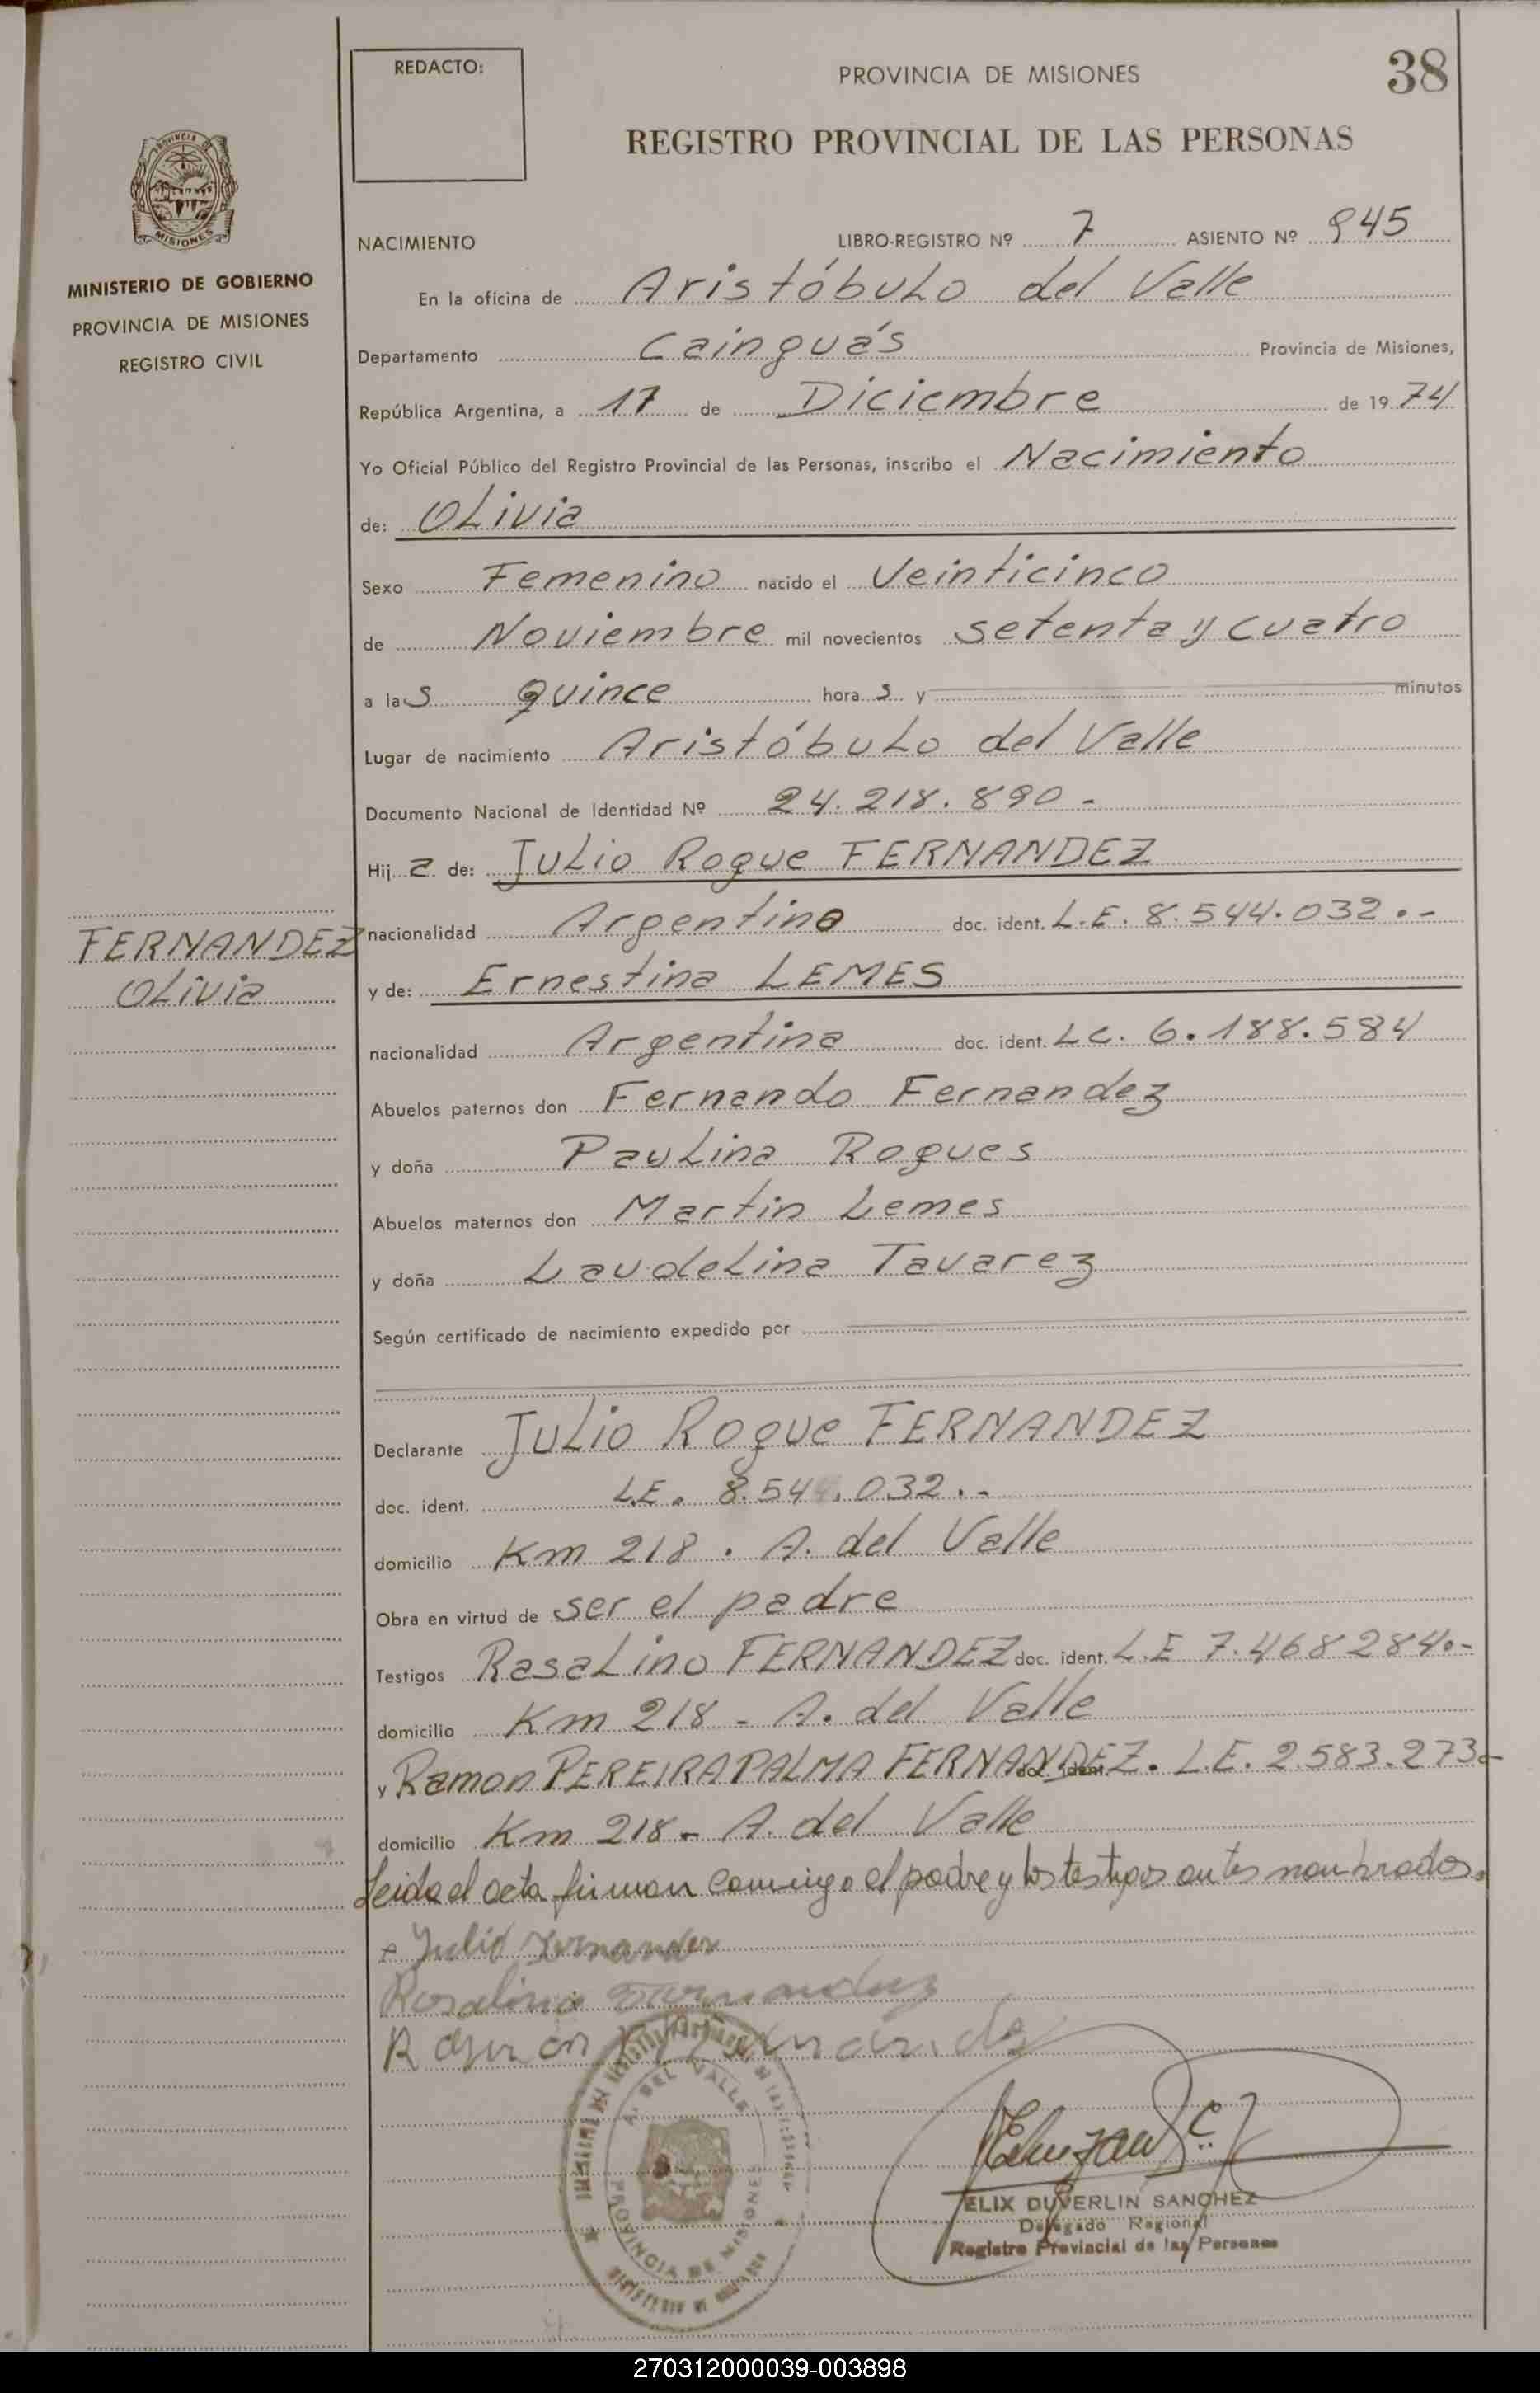 REDACTO:
PROVINCIA DE MISIONES
38
REGISTRO PROVINCIAL DE LAS PERSONAS
PROVINCIA DE
MISIONES
MINISTERIO DE GOBIERNO
PROVINCIA DE MISIONES
REGISTRO CIVIL
NACIMIENTO LIBRO-REGISTRO Nº 7 ASIENTO Nº 945
En la oficina de Aristóbulo del Valle
Departamento Cainguás Provincia de Misiones,
República Argentina, a 17 de Diciembre de 1974
Yo Oficial Público del Registro Provincial de las Personas, inscribo el Nacimiento
de: Olivia
Sexo Femenino nacido el Veinticinco
de Noviembre mil novecientos setenta y cuatro
a las quince horas y minutos
Lugar de nacimiento Aristóbulo del Valle
Documento Nacional de Identidad Nº 24.218.890-
Hija de: Julio Roque FERNANDEZ
nacionalidad Argentino doc. ident. L.E. 8.544.032.-
y de: Ernestina LEMES
nacionalidad Argentina doc. ident. L.C. 6.188.584
FERNANDEZ
Olivia
Abuelos paternos don Fernando Fernandez
y doña Paulina Roques
Abuelos maternos don Martin Lemes
y doña Laudelina Tavarez
Según certificado de nacimiento expedido por
Declarante Julio Roque FERNANDEZ
doc. ident. L.E. 8.544.032.-
domicilio Km 218. A. del Valle
Obra en virtud de ser el padre
Testigos Rosalino FERNANDEZ doc. ident. L.E 7.468284.-
domicilio Km 218 - A. del Valle
y Ramon PEREIRA PALMA FERNANDEZ. doc. ident. L.E. 2.583.273.-
domicilio Km 218 - A. del Valle
Leida el acta firman conmigo el padre y los testigos antes nombrados.
Julio Fernandez
Rosalino Fernandez
Ramon
A. DEL VALLE
PROVINCIA DE MISIONES
FELIX DUVERLIN SANCHEZ
Delegado Regional
Registro Provincial de las Personas
270312000039-003898